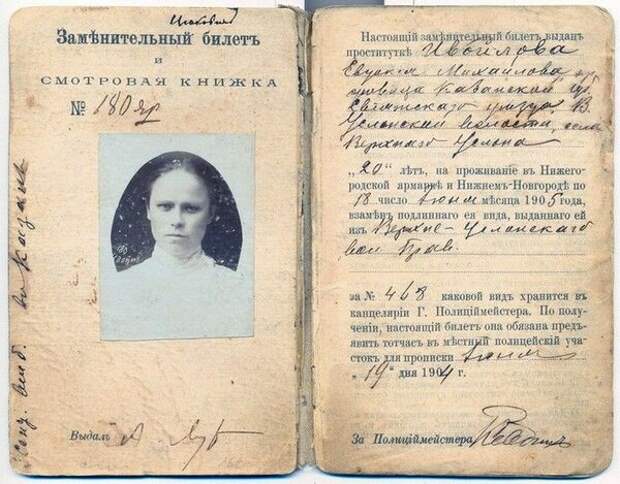 Замѣнительный билетъ
и
СМОТРОВАЯ КНИЖКА
№ 180 яр
Выдалъ
Настоящій замѣнительный билетъ выданъ
проституткѣ Ивойлова
Евдокія Михайлова, кр.
дѣвица Казанской губ.
Свіяжскаго уѣзда В.
Услонской волости, села
Верхняго Услона
„20" лѣтъ, на проживаніе въ Нижего-
родской ярмаркѣ и Нижнемъ-Новгородѣ по
18 число Іюня мѣсяца 1905 года,
взамѣнъ подлиннаго ея вида, выданнаго ей
изъ Верхне-Услонскаго
вол. Прав.
за № 468 каковой видъ хранится въ
канцеляріи Г. Полиціймейстера. По полу-
ченіи, настоящій билетъ она обязана предъ-
явить тотчасъ въ мѣстный полицейскій уча-
стокъ для прописки Іюня
„19" дня 1904 г.
За Полиціймейстера